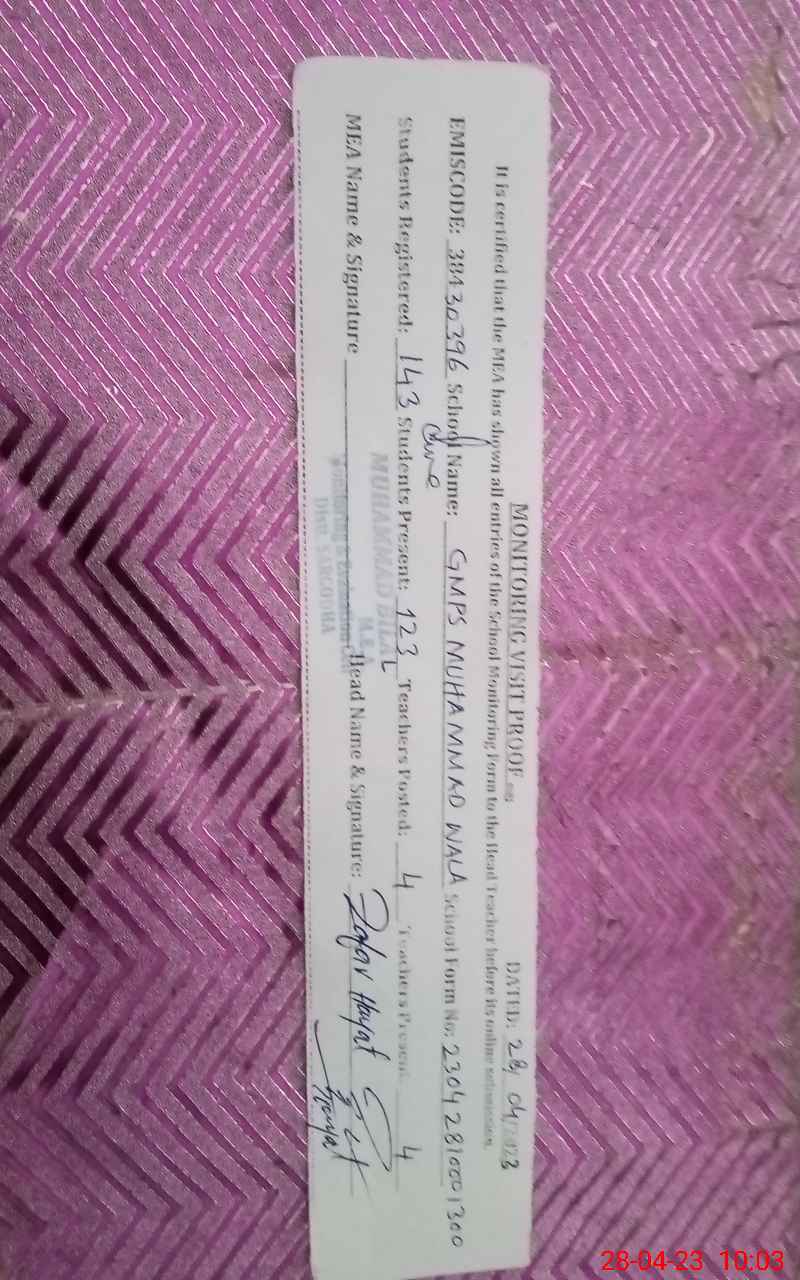 MONITORING VISIT PROOF DATED: 28/04/2023
It is certified that the MEA has shown all entries of the School Monitoring Form to the Head Teacher before its online submission.
EMISCODE: 38430396 School Name: GMPS MUHAMMAD WALA School Form No: 2304281000 1300
Students Registered: 143 Students Present: 123 Teachers Posted: 4 Teachers Present 4
MUHAMMAD BILAL
M.E.A
MEA Name & Signature Head Name & Signature: Zafar Hayat
Monitoring & Evaluation
Distt: SARGODHA
28-04-23 10:03